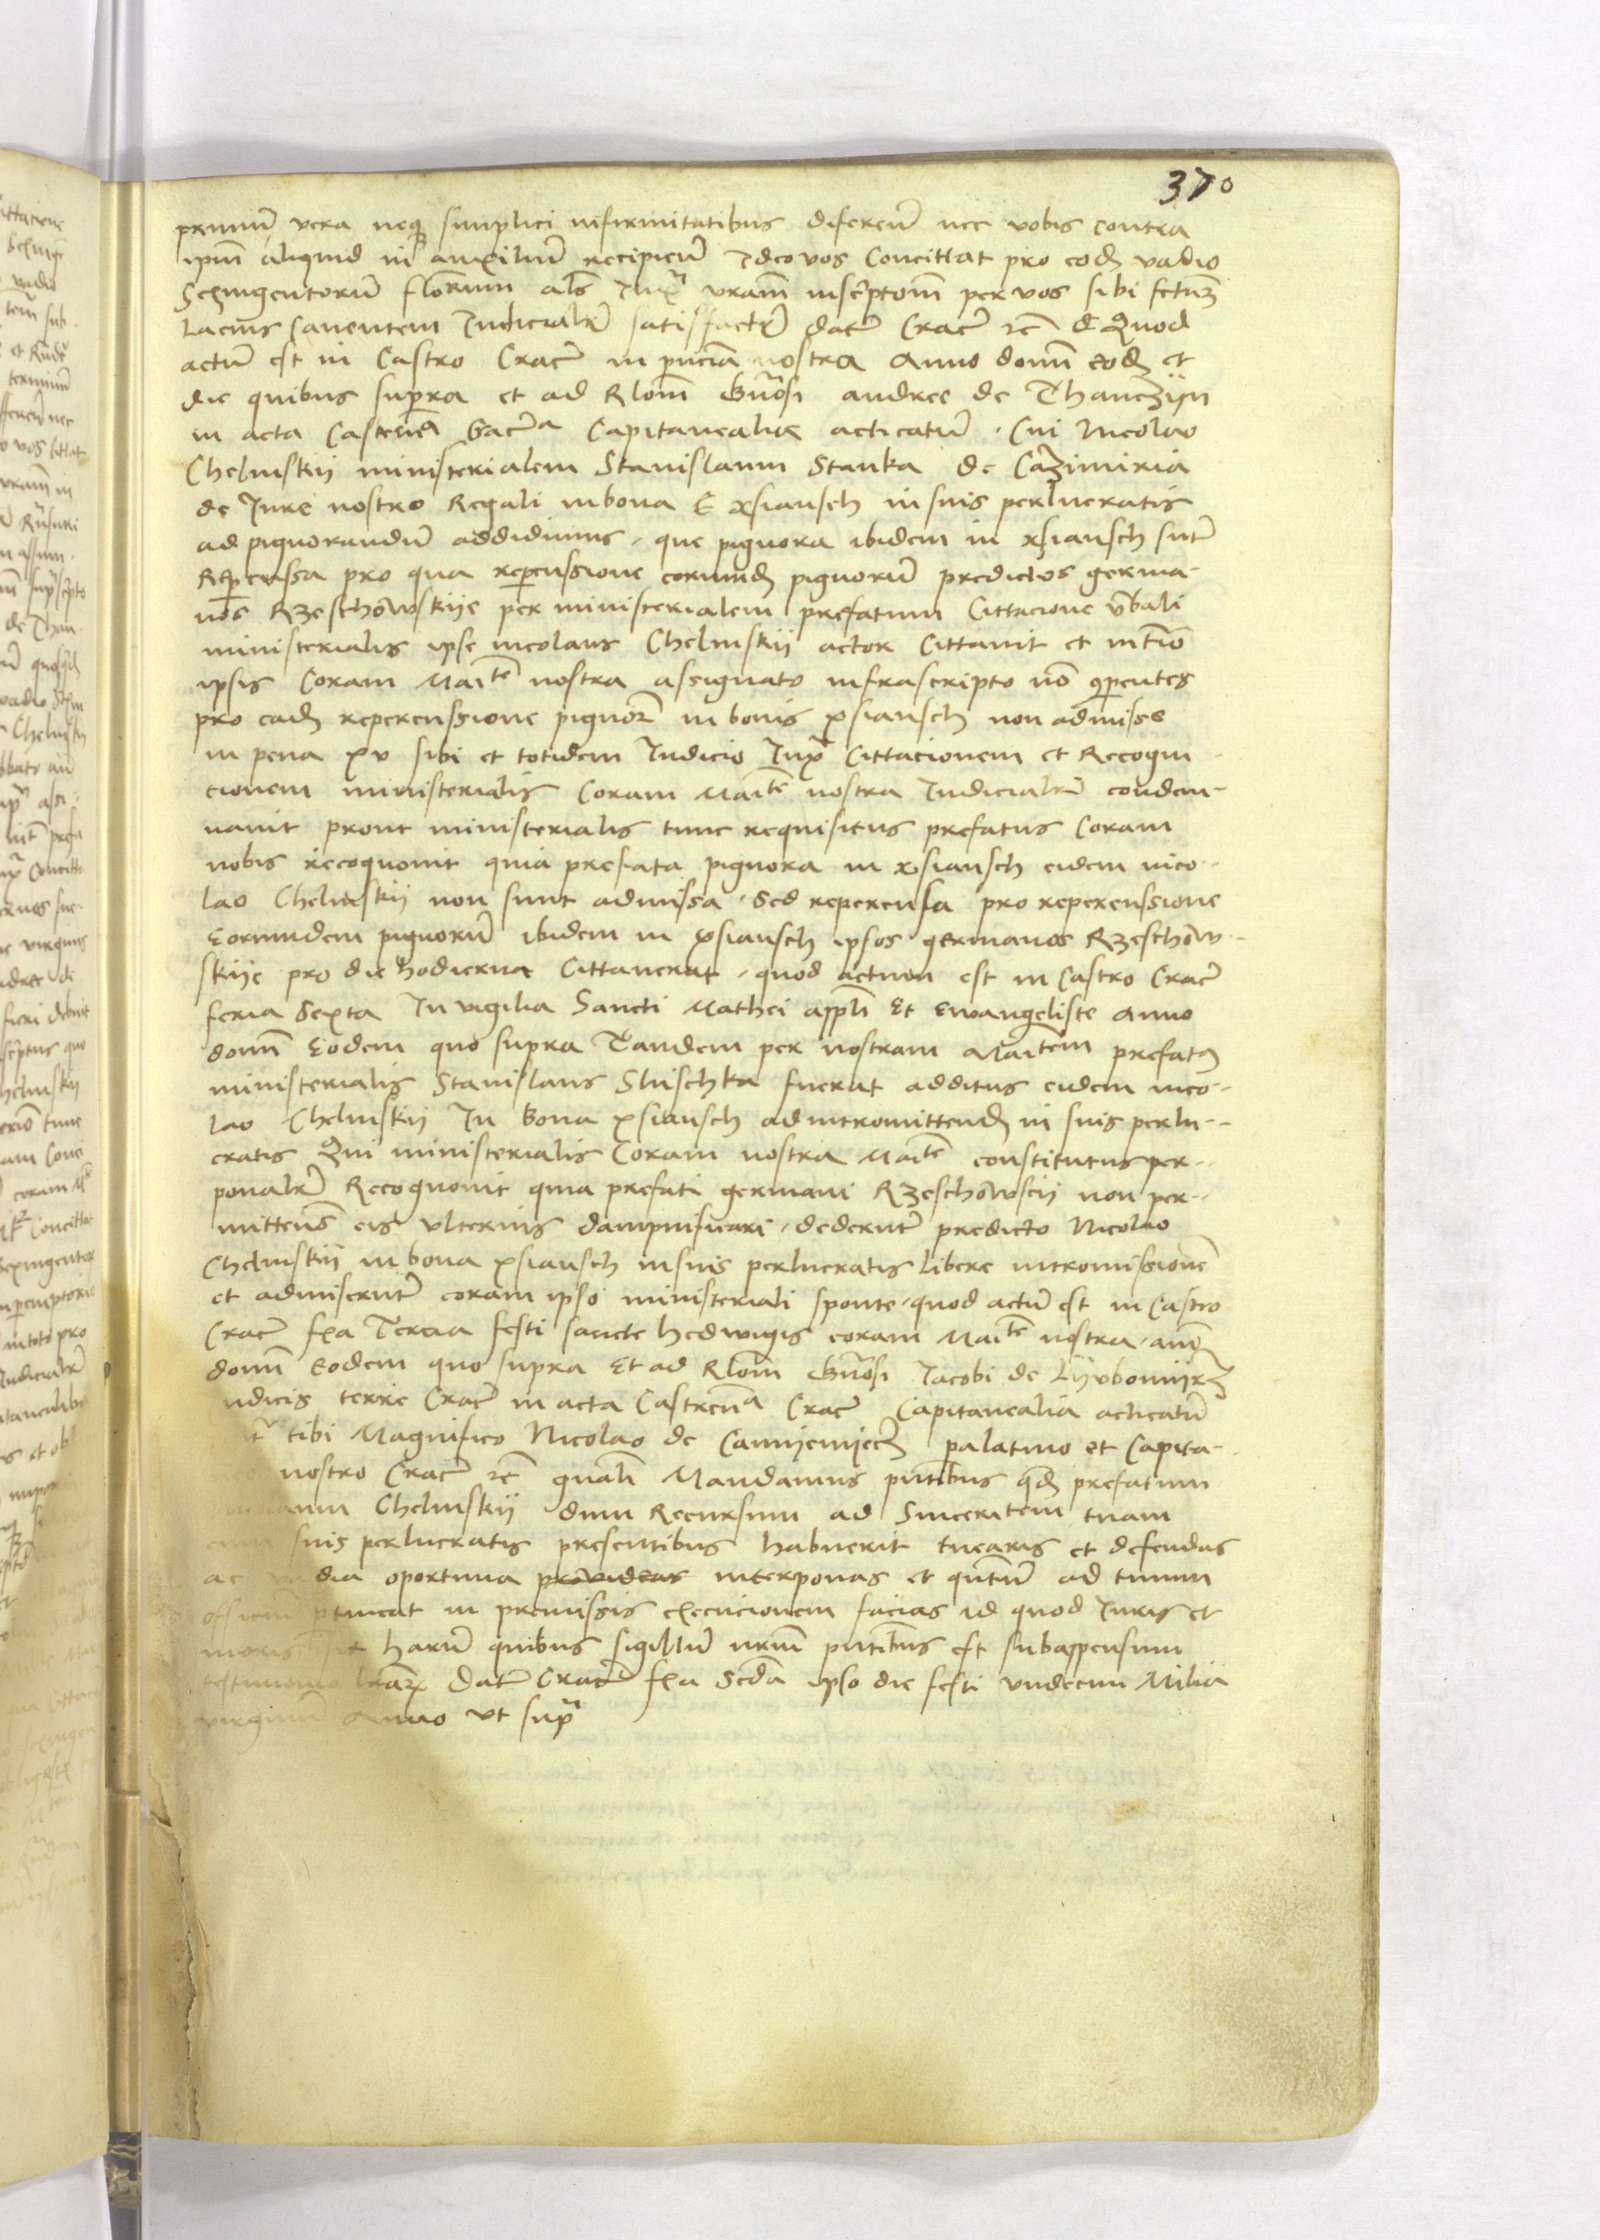 370
primum vera neq simplici infirmitatibus differendum nec vobis contra
ipm aliquid in auxilium recipiendum Ideo vos Concittat pro eod vadio
Sexingentorum florenum als Iux vram inscriptom per vos sibi
lacius Caventem Iudicialr satisfactur dat Crac rc Quod
actum est in Castro Crac in pncia nostra Anno domi eod et
die quibus supra et ad Rlom Gnosi andree de Thanczijn
in acta Castren Capitanealia acticatum . Cui Nicolao
Chelmskij ministerialem Stanislaum Stanka de Cazimiria
de Iure nostro Regali in bona Xsiansch in suis perlucratis
ad pignorandum addidimus . que pignora ibidem in xsiansch sunt
Repcussa pro qua repcussione eorumd pignorum predictos germa-
nos Rzeschowskije per ministerialem prefatum Cittacione vbali
ministerialis ipse nicolaus Chelmskij actor Cittavit et in tmio
ipsis Coram Maite nostra assignato infrascripto no comperentes
pro ead repercussione pignor in bonis xsiansch non admisse
in pena xv sibi et totidem Iudicio Iux Cittacionem et Recogni-
cionem ministerialis Coram Maite nostra Iudicialr condem-
navit prout ministerialis tunc requisitus prefatus Coram
nobis recognovit quia prefata pignora in xsiansch eidem nico-
lao Chelmskij non sunt admissa . sed repercussa pro repercussione
Eorumdem pignorum ibidem in xsiansch ipsos germanos Rzeschow-
skije pro die hodierna Cittaverat . quod actum est in Castro Crac
feria Sexta In vigilia Sancti Mathei appli Et Ewangeliste Anno
domi Eodem quo supra Tandem per nostram Maitem prefat
ministerialis Stanislaus Slischka fuerat additus eidem nico-
lao Chelmskij In bona xsiansch ad intromittend in suis perlu-
cratis Qui ministerialis Coram nostra Maite constitutus per-
ponalr Recognovit quia prefati germani Rzeschowscij non per-
mittens eis ulterius dampnificari . dederunt predicto Nicolao
Chelmskij in bona xsiansch in suis perlucratis libere intromissione
et admiserunt coram ipso ministeriali sponte . quod actum est in Castro
Crac fra Tercia festi sancte hedwigis coram Maite nostra . anno
domi Eodem quo supra Et ad Rlom Gnosi Iacobi de Lijvbomijrz
udicis terre Crac in acta Castren Crac Capitanealia acticatum
tibi Magnifico Nicolao de Camijenijecz palatino et Capita-
nostro Crac rc Mandamus pntibus qd prefatum
Chelmskij dum Recursum ad Sinceritem tuam
suis perlucratis presentibus habuerit tuearis et defendas
ac vadia oportuna provideas interponas et quntum ad tuum
officium ptineat in premissis execucionem facias id quod Iuris et
moris harum quibus sigillum nrum pntibus est subappensum
testimonio lrar Dat Crac fra Scda ipso die festi undecim Milia
virginum Anno ut supr